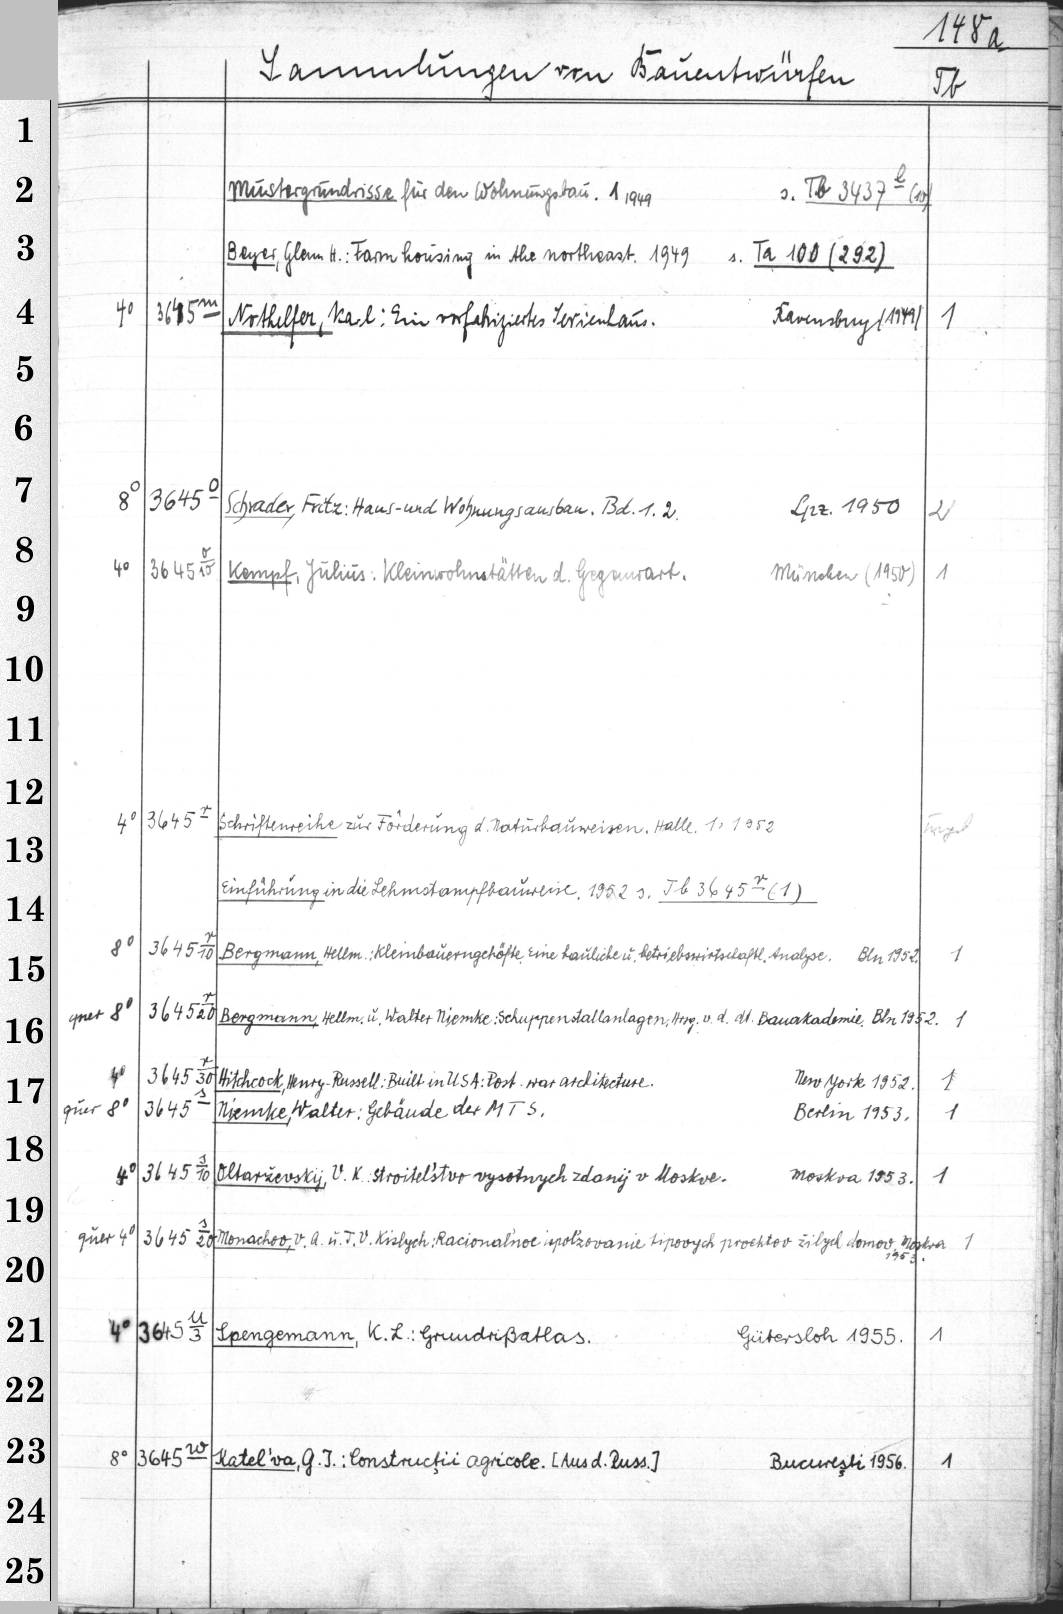 148a
Sammlungen von Bauentwürfen Tb
1
2 Mustergrundrisse für den Wohnungsbau. 1, 1949 s. Tb 3437 l (10)
3 Beyer, Glenn H.: Farm housing in the northeast. 1949 s. Ta 100 (292)
4 4° 3645 m Nothelfer, Karl: Ein vorfabriziertes Serienhaus. Ravensburg (1949) 1
5
6
7 8° 3645 o Schrader, Fritz: Haus- und Wohnungsausbau. Bd. 1. 2. Lpz. 1950 2
8 4° 3645 o/10 Kempf, Julius: Kleinwohnstätten d. Gegenwart. München (1950) 1
9
10
11
12 4° 3645 r Schriftenreihe zur Förderung d. Naturbauweisen. Halle. 1, 1952
13
14 Einführung in die Lehmstampfbauweise. 1952 s. Tb 3645 r (1)
15 8° 3645 r/10 Bergmann, Hellm.: Kleinbauerngehöfte. Eine bauliche u. betriebswirtschaftl. Analyse. Bln 1952. 1
16 quer 8° 3645 r/20 Bergmann, Hellm. u. Walter Niemke: Schuppenstallanlagen, Hrsg. v. d. dt. Bauakademie. Bln 1952. 1
17 4° 3645 r/30 Hitchcock, Henry-Russell: Built in USA: Post-war architecture. New York 1952. 1
quer 8° 3645 s Niemke, Walter: Gebäude der MTS. Berlin 1953. 1
18 4° 3645 s/10 Oltarževskij, V. K.: Stroitel'stvo vysotnych zdanij v Moskve. Moskva 1953. 1
19
20 quer 4° 3645 s/20 Monachov, V. A. u. T. V. Kislych: Racional'noe ispol'zovanie tipovych proektov žilych domov. Moskva 1
1953.
21 4° 3645 u/3 Spengemann, K. L.: Grundrißatlas. Gütersloh 1955. 1
22
23 8° 3645 w Katel'va, G. I.: Construcţii agricole. [Aus d. Russ.] Bucureşti 1956. 1
24
25